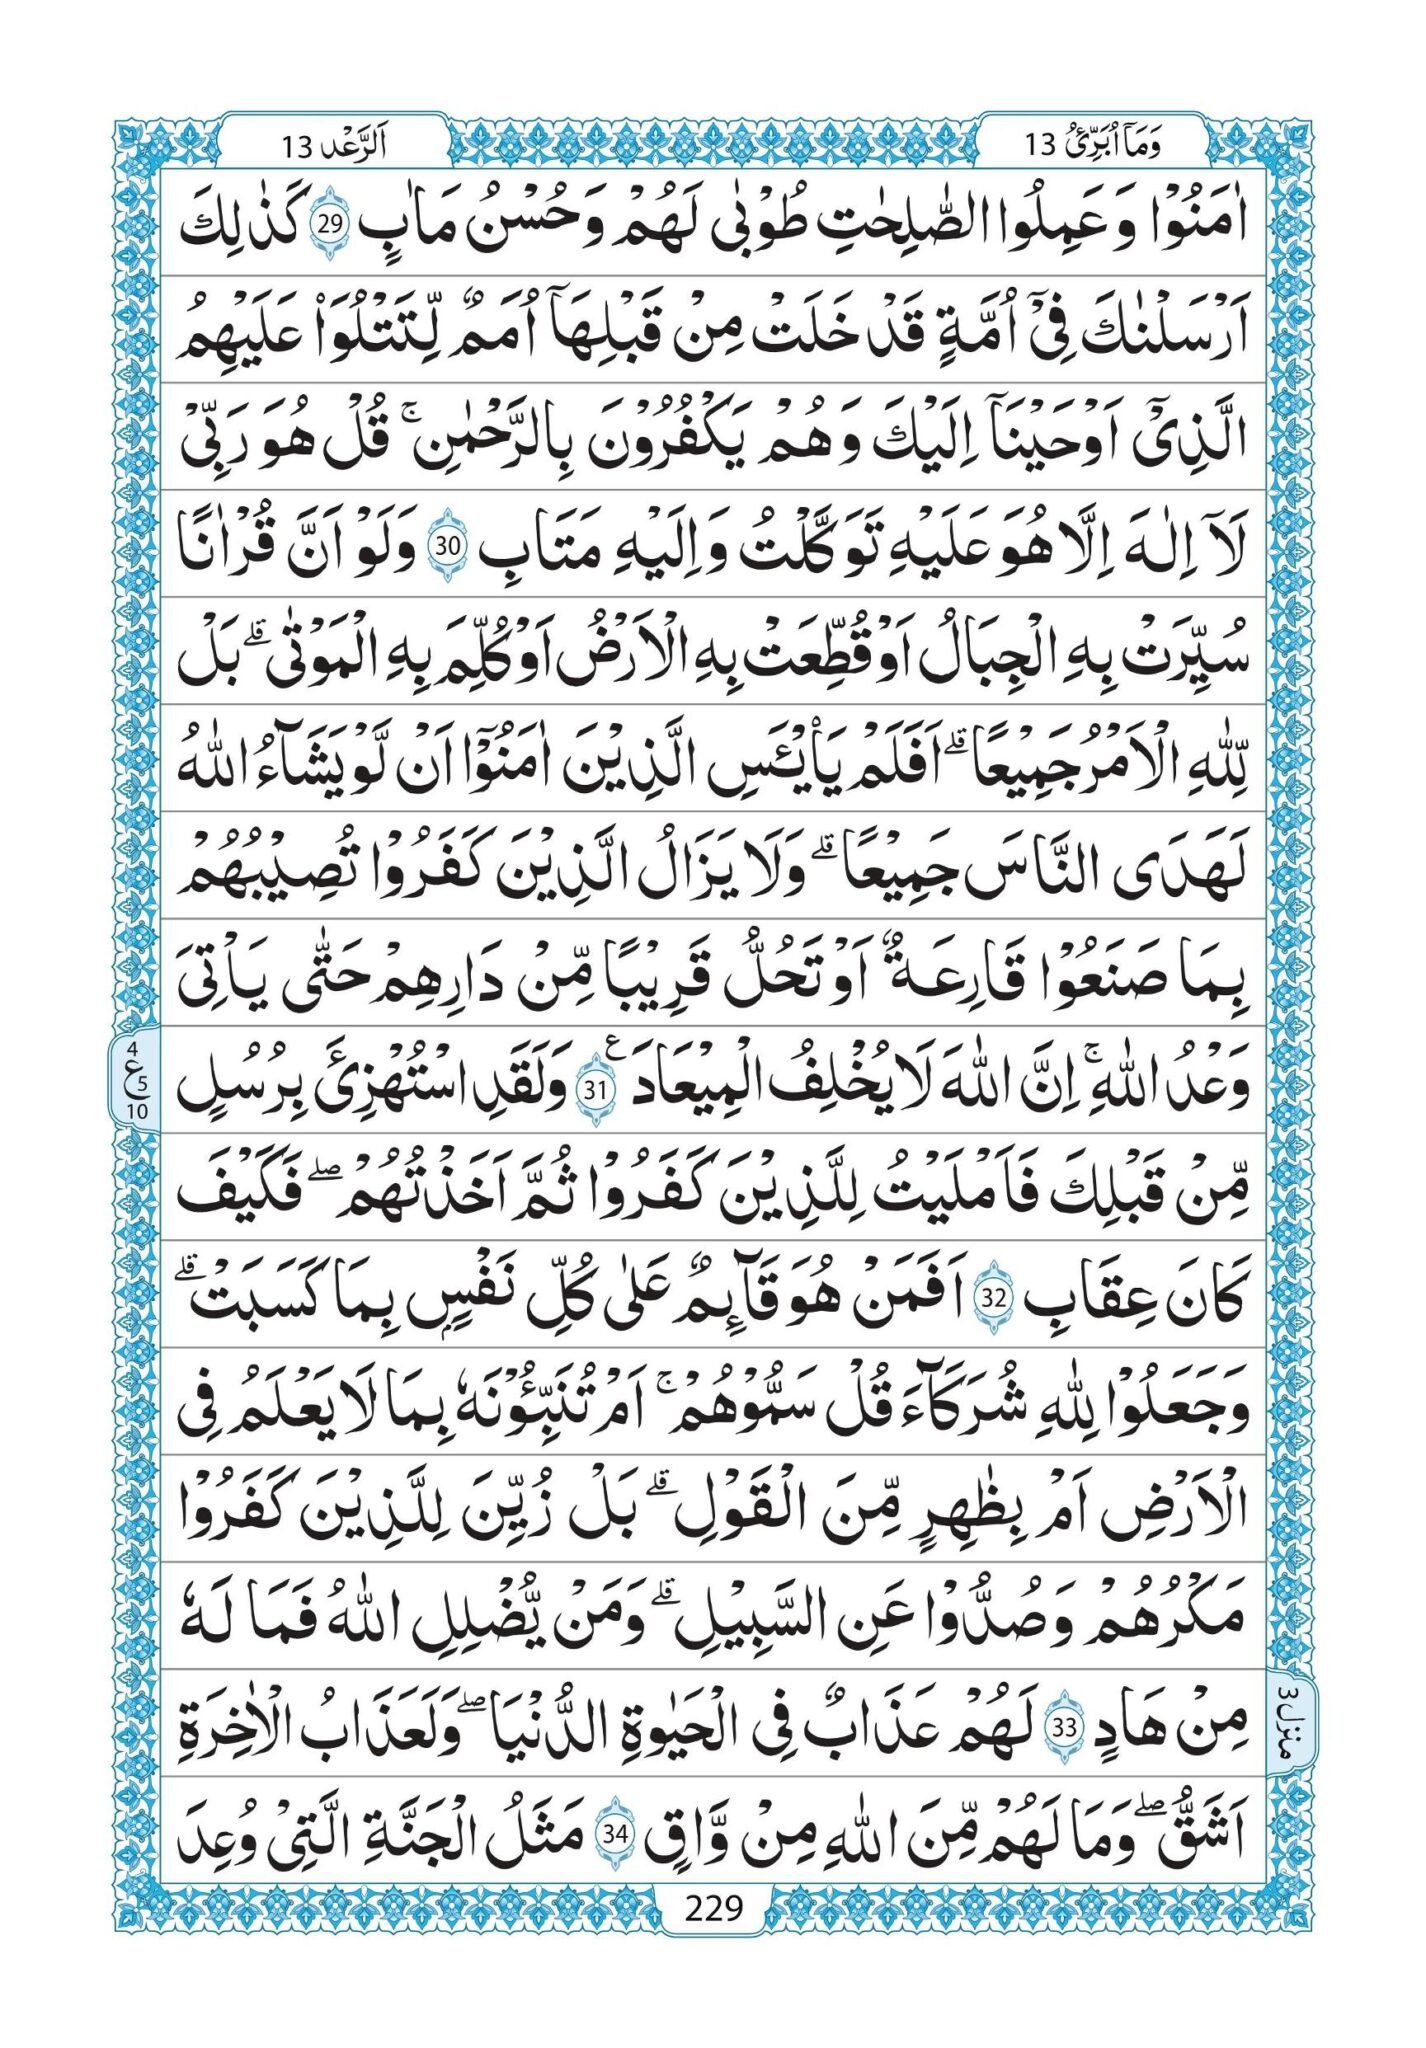 وَمَاۤ اُبَرِّئُ 13
اَلرَّعْد 13
اٰمَنُوْا وَ عَمِلُوا الصّٰلِحٰتِ طُوْبٰى لَهُمْ وَ حُسْنُ مَاٰبٍ 29 كَذٰلِكَ
اَرْسَلْنٰكَ فِیْۤ اُمَّةٍ قَدْ خَلَتْ مِنْ قَبْلِهَاۤ اُمَمٌ لِّتَتْلُوَا۟ عَلَیْهِمُ
الَّذِیْۤ اَوْحَیْنَاۤ اِلَیْكَ وَ هُمْ یَكْفُرُوْنَ بِالرَّحْمٰنِ ۚ قُلْ هُوَ رَبِّیْ
لَاۤ اِلٰهَ اِلَّا هُوَ عَلَیْهِ تَوَكَّلْتُ وَ اِلَیْهِ مَتَابِ 30 وَ لَوْ اَنَّ قُرْاٰنًا
سُیِّرَتْ بِهِ الْجِبَالُ اَوْ قُطِّعَتْ بِهِ الْاَرْضُ اَوْ كُلِّمَ بِهِ الْمَوْتٰى ؕ بَلْ
لِّلّٰهِ الْاَمْرُ جَمِیْعًا ۗ اَفَلَمْ یَا۟یْـَٔسِ الَّذِیْنَ اٰمَنُوْۤا اَنْ لَّوْ یَشَآءُ اللّٰهُ
لَهَدَى النَّاسَ جَمِیْعًا ۗ وَ لَا یَزَالُ الَّذِیْنَ كَفَرُوْا تُصِیْبُهُمْ
بِمَا صَنَعُوْا قَارِعَةٌ اَوْ تَحُلُّ قَرِیْبًا مِّنْ دَارِهِمْ حَتّٰى یَاْتِیَ
وَعْدُ اللّٰهِ ۚ اِنَّ اللّٰهَ لَا یُخْلِفُ الْمِیْعَادَ ع 31 وَ لَقَدِ اسْتُهْزِئَ بِرُسُلٍ
4
ع 5
10
مِّنْ قَبْلِكَ فَاَمْلَیْتُ لِلَّذِیْنَ كَفَرُوْا ثُمَّ اَخَذْتُهُمْ ۖ فَكَیْفَ
كَانَ عِقَابِ 32 اَفَمَنْ هُوَ قَآىِٕمٌ عَلٰى كُلِّ نَفْسٍۭ بِمَا كَسَبَتْ ۗ
وَ جَعَلُوْا لِلّٰهِ شُرَكَآءَ قُلْ سَمُّوْهُمْ ۚ اَمْ تُنَبِّـُٔوْنَهٗ بِمَا لَا یَعْلَمُ فِی
الْاَرْضِ اَمْ بِظَاهِرٍ مِّنَ الْقَوْلِ ۗ بَلْ زُیِّنَ لِلَّذِیْنَ كَفَرُوْا
مَكْرُهُمْ وَ صُدُّوْا عَنِ السَّبِیْلِ ۗ وَ مَنْ یُّضْلِلِ اللّٰهُ فَمَا لَهٗ
مِنْ هَادٍ 33 لَهُمْ عَذَابٌ فِی الْحَیٰوةِ الدُّنْیَا ۖ وَ لَعَذَابُ الْاٰخِرَةِ
منزل 3
اَشَقُّ ۖ وَ مَا لَهُمْ مِّنَ اللّٰهِ مِنْ وَّاقٍ 34 مَثَلُ الْجَنَّةِ الَّتِیْ وُعِدَ
229